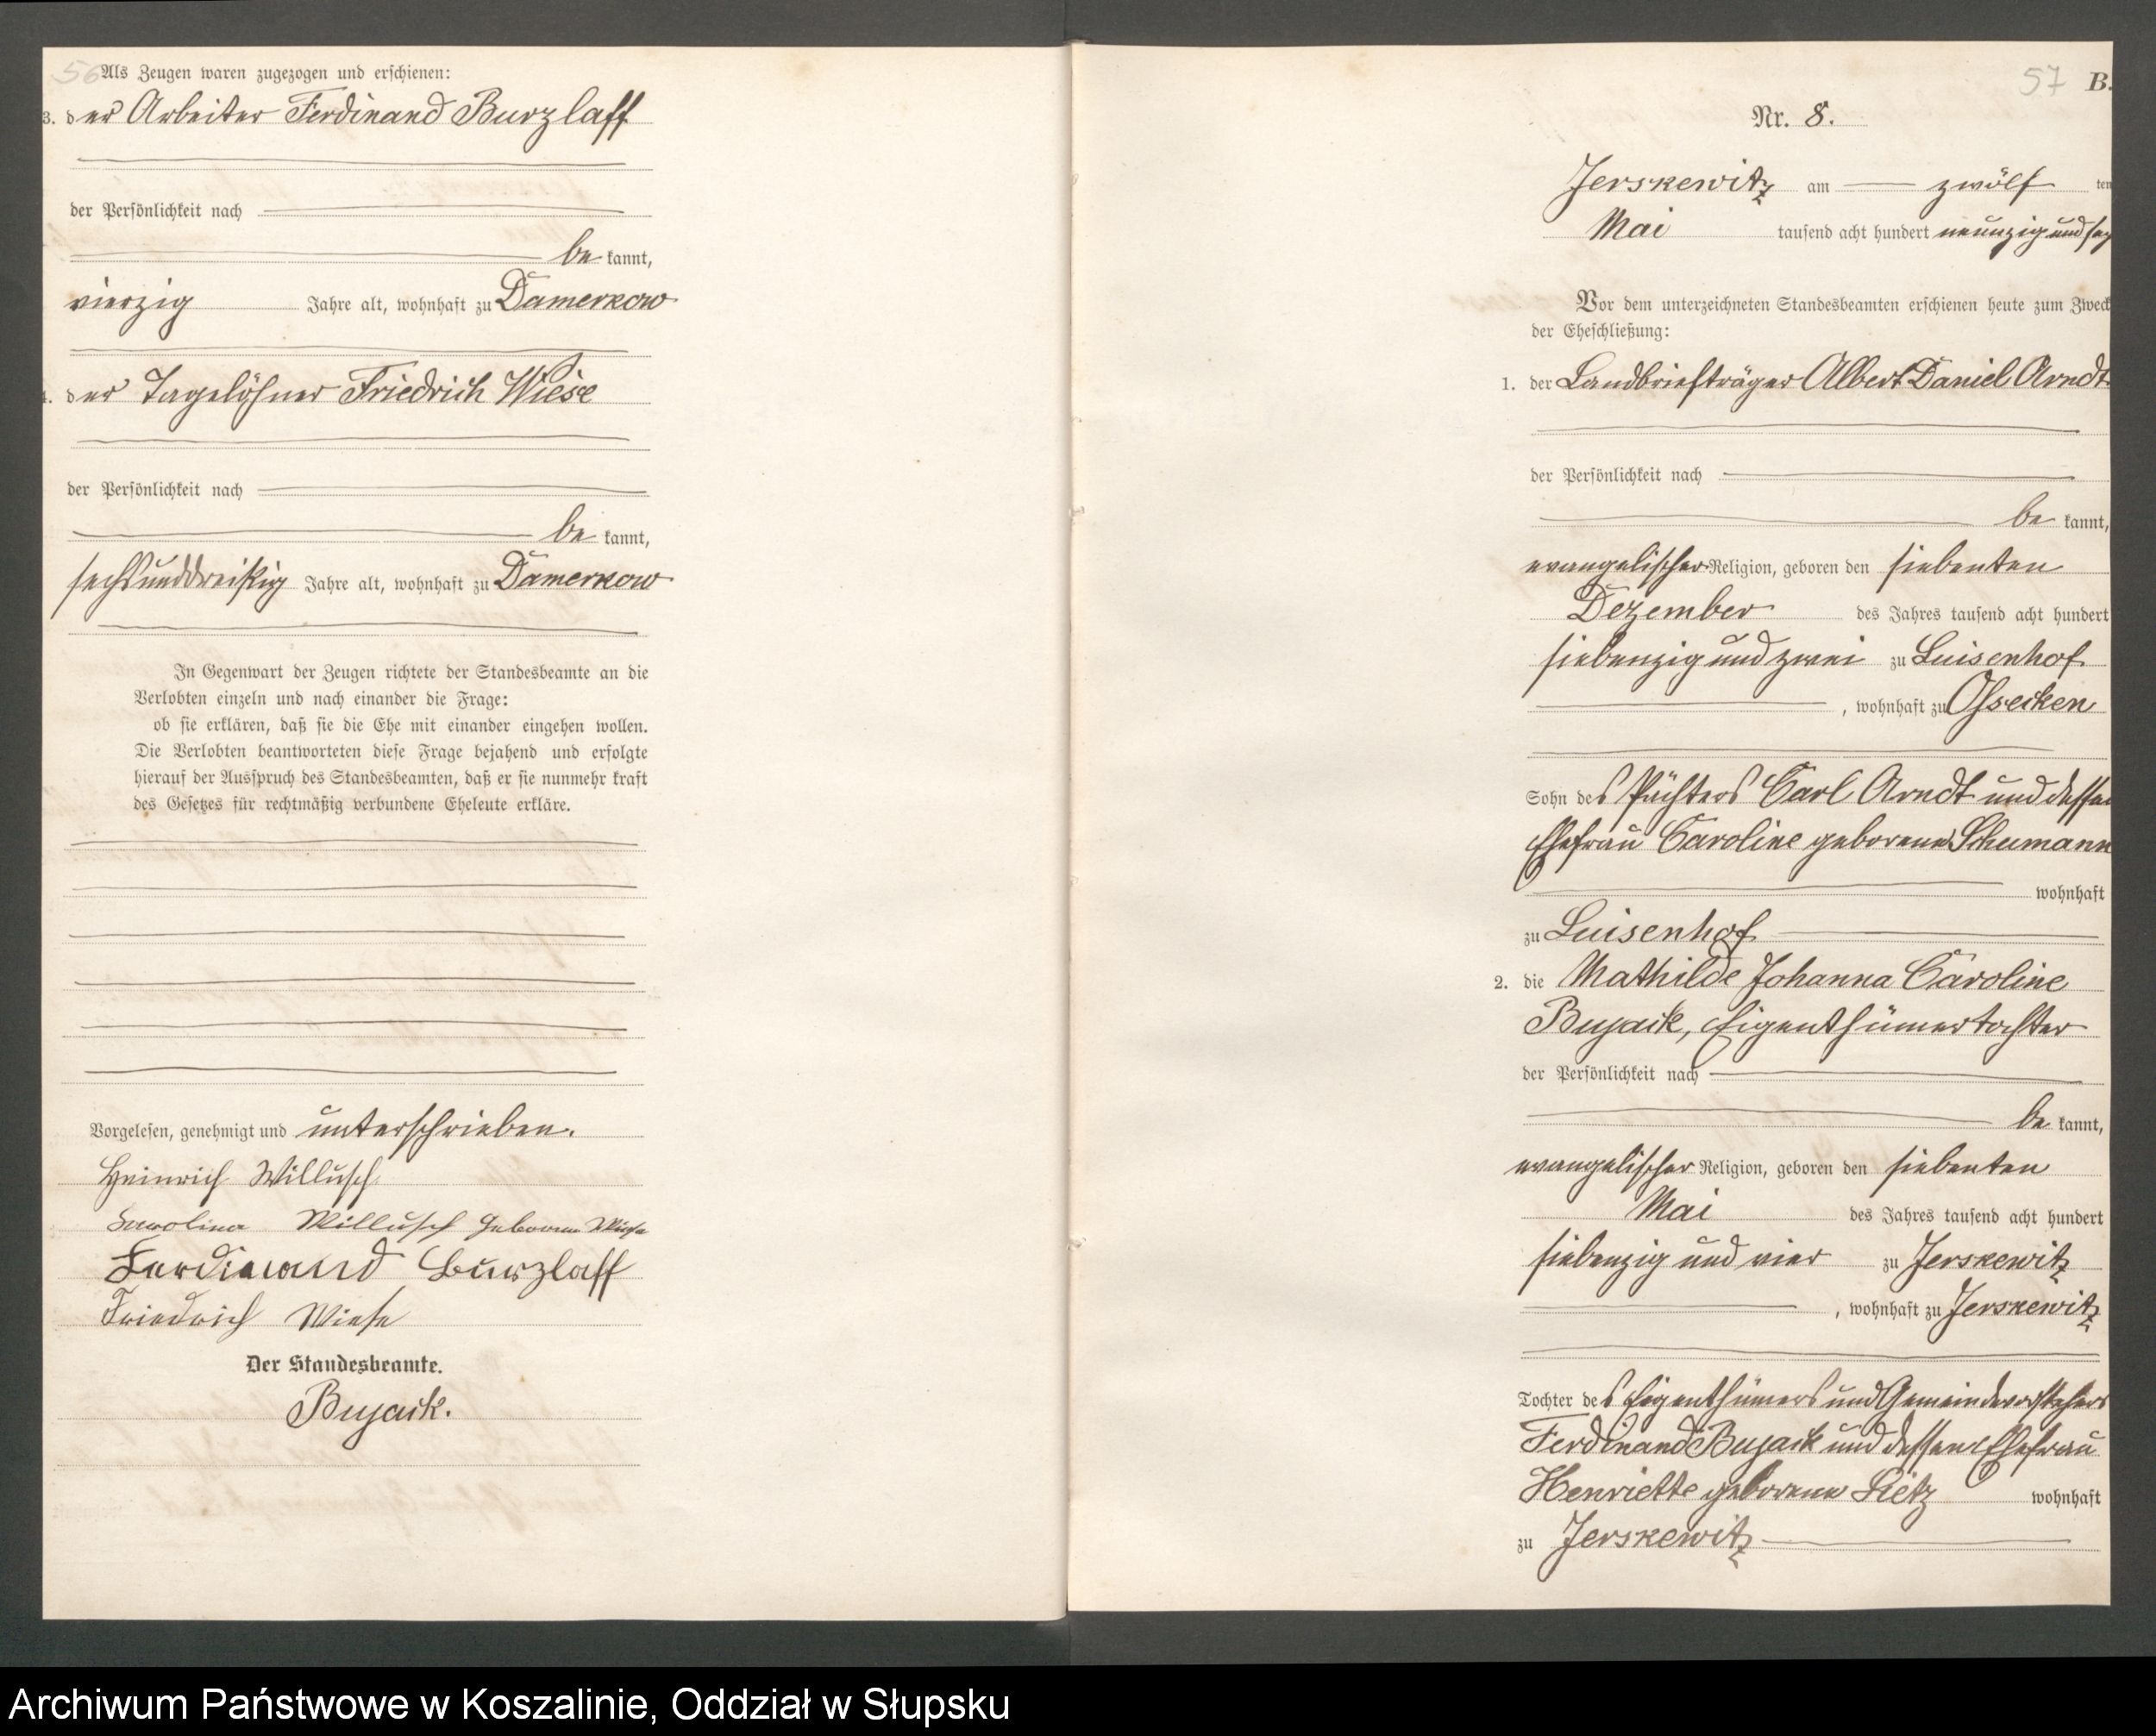 56
Als Zeugen waren zugezogen und erschienen:
3. der Arbeiter Ferdinand Burzlaff
der Persönlichkeit nach
be kannt,
vierzig Jahre alt, wohnhaft zu Damerkow
der Tagelöhner Friedrich Wiese
der Persönlichkeit nach
be kannt,
sechsunddreißig Jahre alt, wohnhaft zu Damerkow
In Gegenwart der Zeugen richtete der Standesbeamte an die
Verlobten einzeln und nach einander die Frage:
ob sie erklären, daß sie die Ehe mit einander eingehen wollen.
Die Verlobten beantworteten diese Frage bejahend und erfolgte
hierauf der Ausspruch des Standesbeamten, daß er sie nunmehr kraft
des Gesetzes für rechtmäßig verbundene Eheleute erkläre.
Vorgelesen, genehmigt und unterschrieben.
Heinrich Willusch
Karolina Willusch geborene Wiese
Ferdinand Burzlaff
Friedrich Wiese
Der Standesbeamte.
Bujack.
57 B.
Nr. 8.
Jerskewitz am zwölf ten
Mai tausend acht hundert neunzig und
Vor dem unterzeichneten Standesbeamten erschienen heute zum Zweck
der Eheschließung:
1. der Landbriefträger Albert Daniel Arndt
der Persönlichkeit nach
be kannt,
evangelischer Religion, geboren den siebenten
Dezember des Jahres tausend acht hundert
siebenzig und zwei zu Luisenhof
, wohnhaft zu Ossecken
Sohn des Pächters Carl Arndt und dessen
Ehefrau Caroline geborene Schumann
wohnhaft
zu Luisenhof
2. die Mathilde Johanna Caroline
Bujack, Eigenthümertochter
der Persönlichkeit nach
be kannt,
evangelischer Religion, geboren den siebenten
Mai des Jahres tausend acht hundert
siebenzig und vier zu Jerskewitz
, wohnhaft zu Jerskewitz
Tochter des Eigenthümers und Gemeindevorstehers
Ferdinand Bujack und dessen Ehefrau
Henriette geborene Lietz wohnhaft
zu Jerskewitz
Archiwum Państwowe w Koszalinie, Oddział w Słupsku